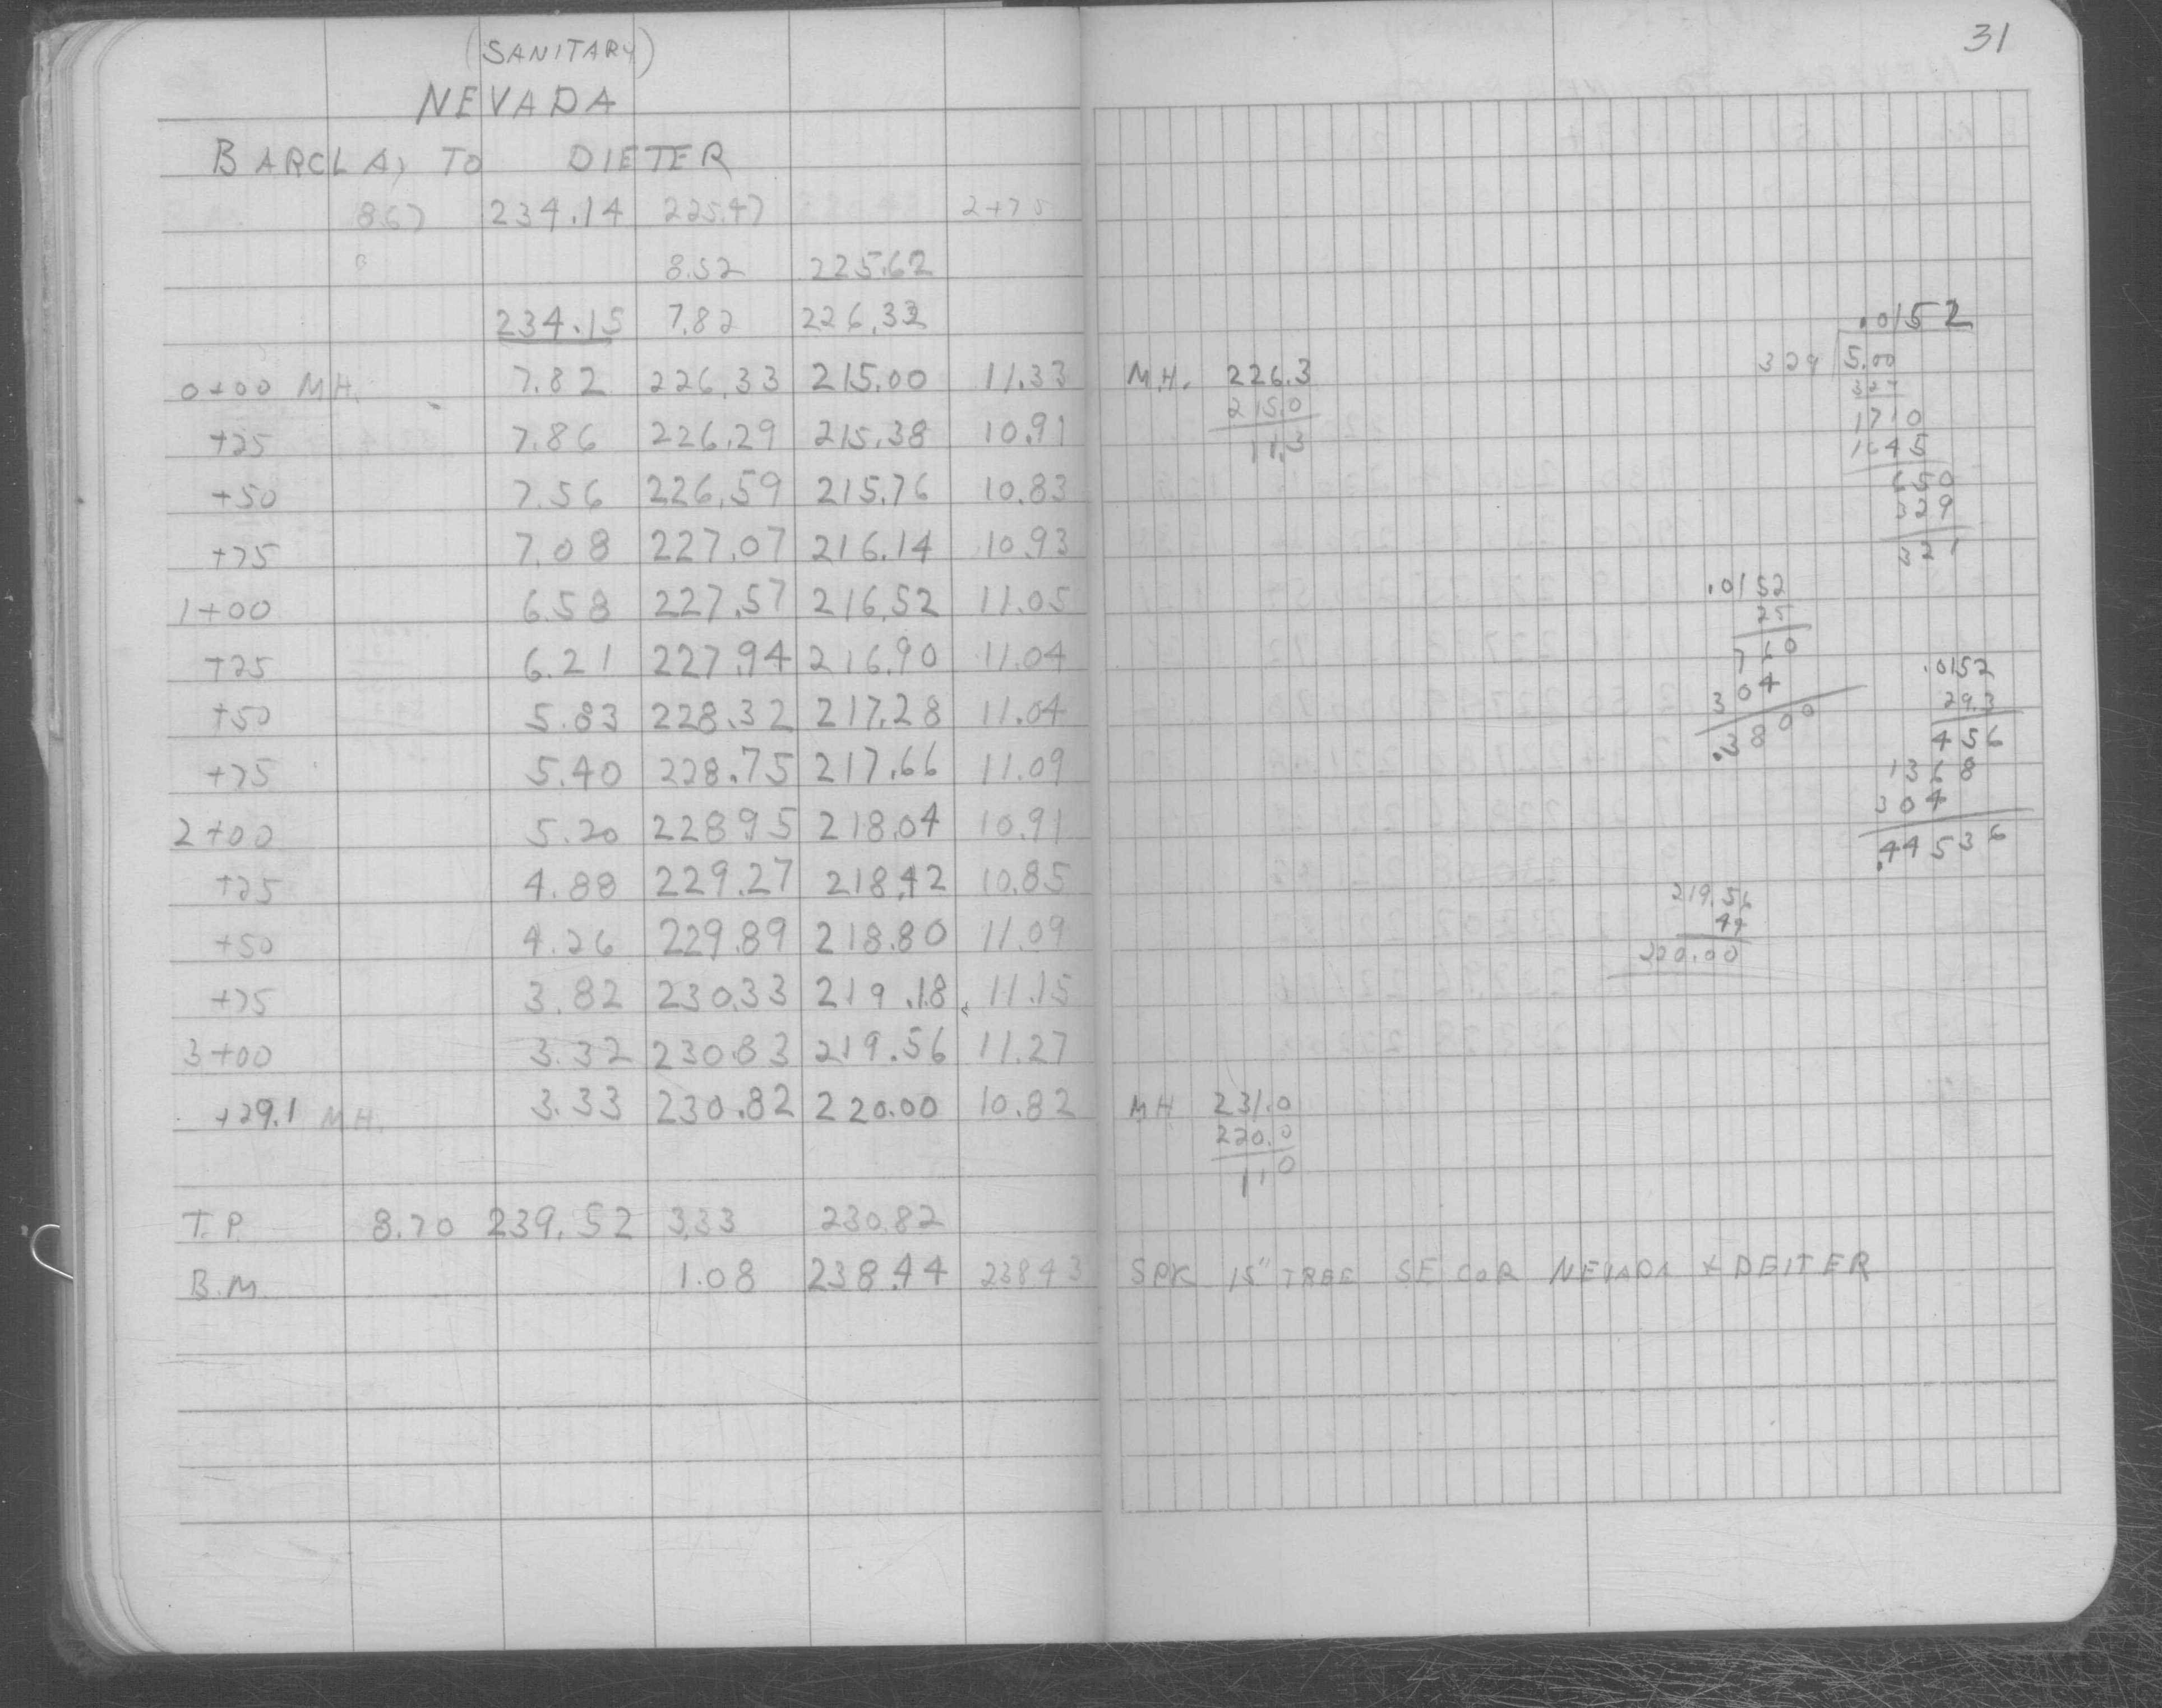 31
(SANITARY)
NEVADA
BARCLAY TO DIETER
8.67 234.14 225.47 2+75
8.52 225.62
234.15 7.82 226.33
0+00 M.H. 7.82 226.33 215.00 11.33
+25 7.86 226.29 215.38 10.91
+50 7.56 226.59 215.76 10.83
+75 7.08 227.07 216.14 10.93
1+00 6.58 227.57 216.52 11.05
+25 6.21 227.94 216.90 11.04
+50 5.83 228.32 217.28 11.04
+75 5.40 228.75 217.66 11.09
2+00 5.20 228.95 218.04 10.91
+25 4.88 229.27 218.42 10.85
+50 4.26 229.89 218.80 11.09
+75 3.82 230.33 219.18 11.15
3+00 3.32 230.83 219.56 11.27
+29.1 M.H. 3.33 230.82 220.00 10.82
T.P. 8.70 239.52 3.33 230.82
B.M. 1.08 238.44 238.43
M.H. 226.3
215.0
11.3
.0152
329 5.00
329
1710
1645
650
329
321
.0152
25
760
304
.3800
.0152
29.3
456
1368
304
.44536
219.56
44
220.00
MH 231.0
220.0
11 0
SPK 15" TREE SE COR NEVADA & DEITER